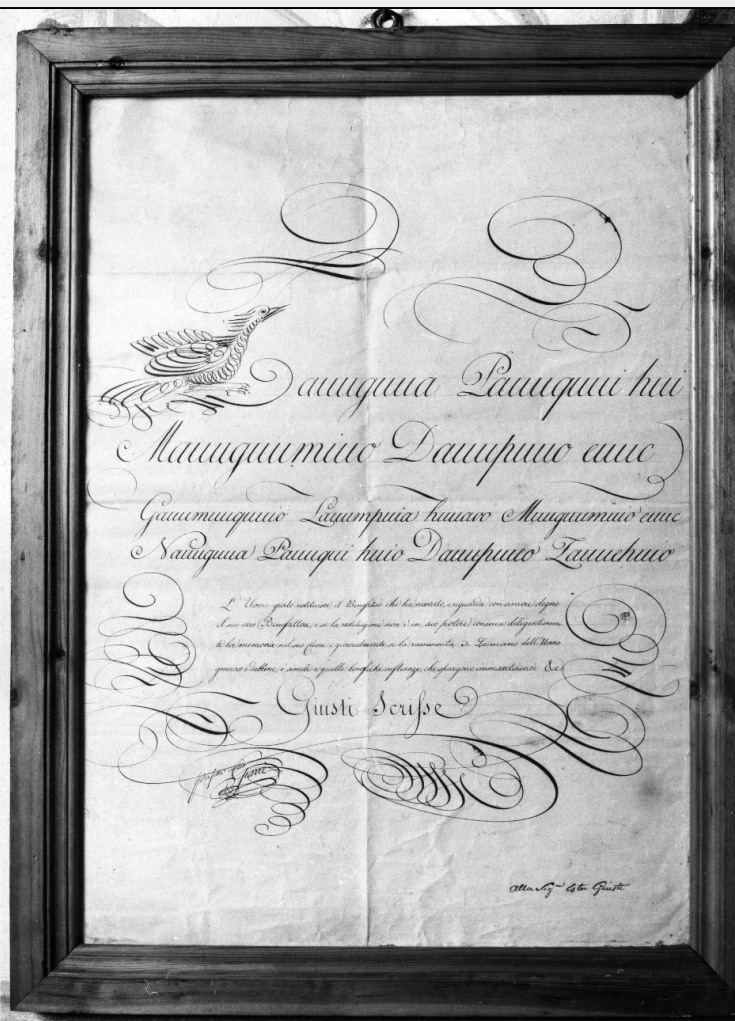 Dauuguua Pauuquui huii
Mauuguumiuo Dauupuuo euuc
Gauumuuquuio Lauumpuia huuavo Muuguumiuio euuc
Nauuguua Pauuqui huio Dauupuuo Zauuehuio
L' Uomo grato restituisce il Benefizio che ha ricevuto, e riguarda con amore degno
il suo vero Benefattore, e se la restituzione non è in suo potere conserva diligentemen
te la memoria nel suo cuore e giornalmente se la rammenta. La mano dell' Uomo
generoso è simile a quelle benefiche influenze, che spargono immantinente &c
Giusti Scrisse
Alla Sig.ra Ester Giusti